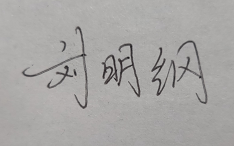 刘明纲